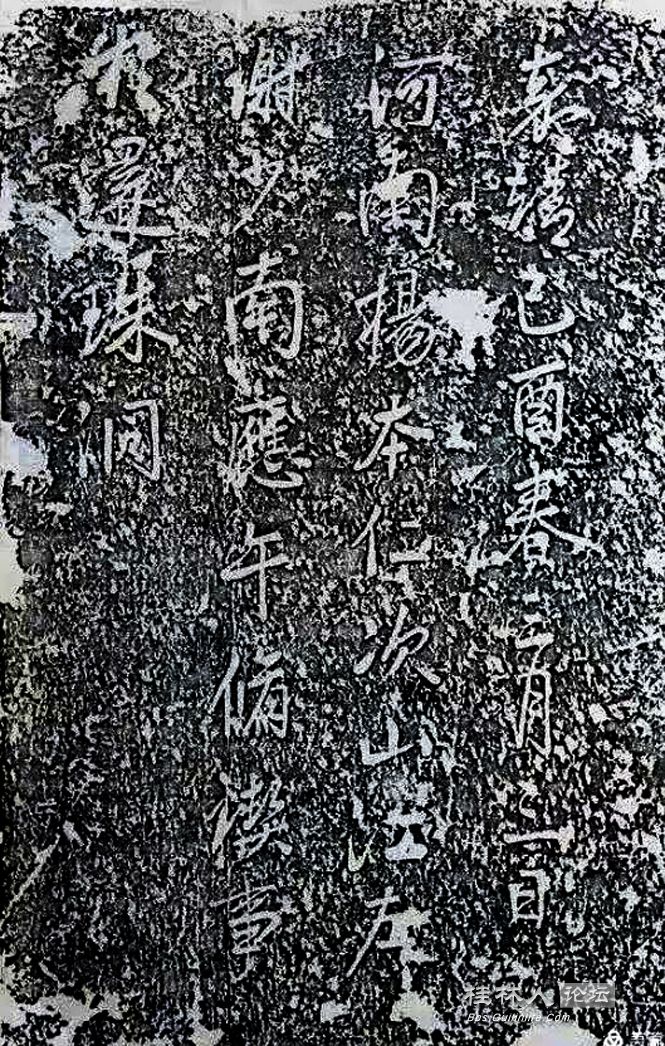 嘉靖己酉春三月一日
河南楊本仁次山江左
謝少南應午脩禊事
於還珠洞
桂林人论坛
Bbs.Guilinlife.Com